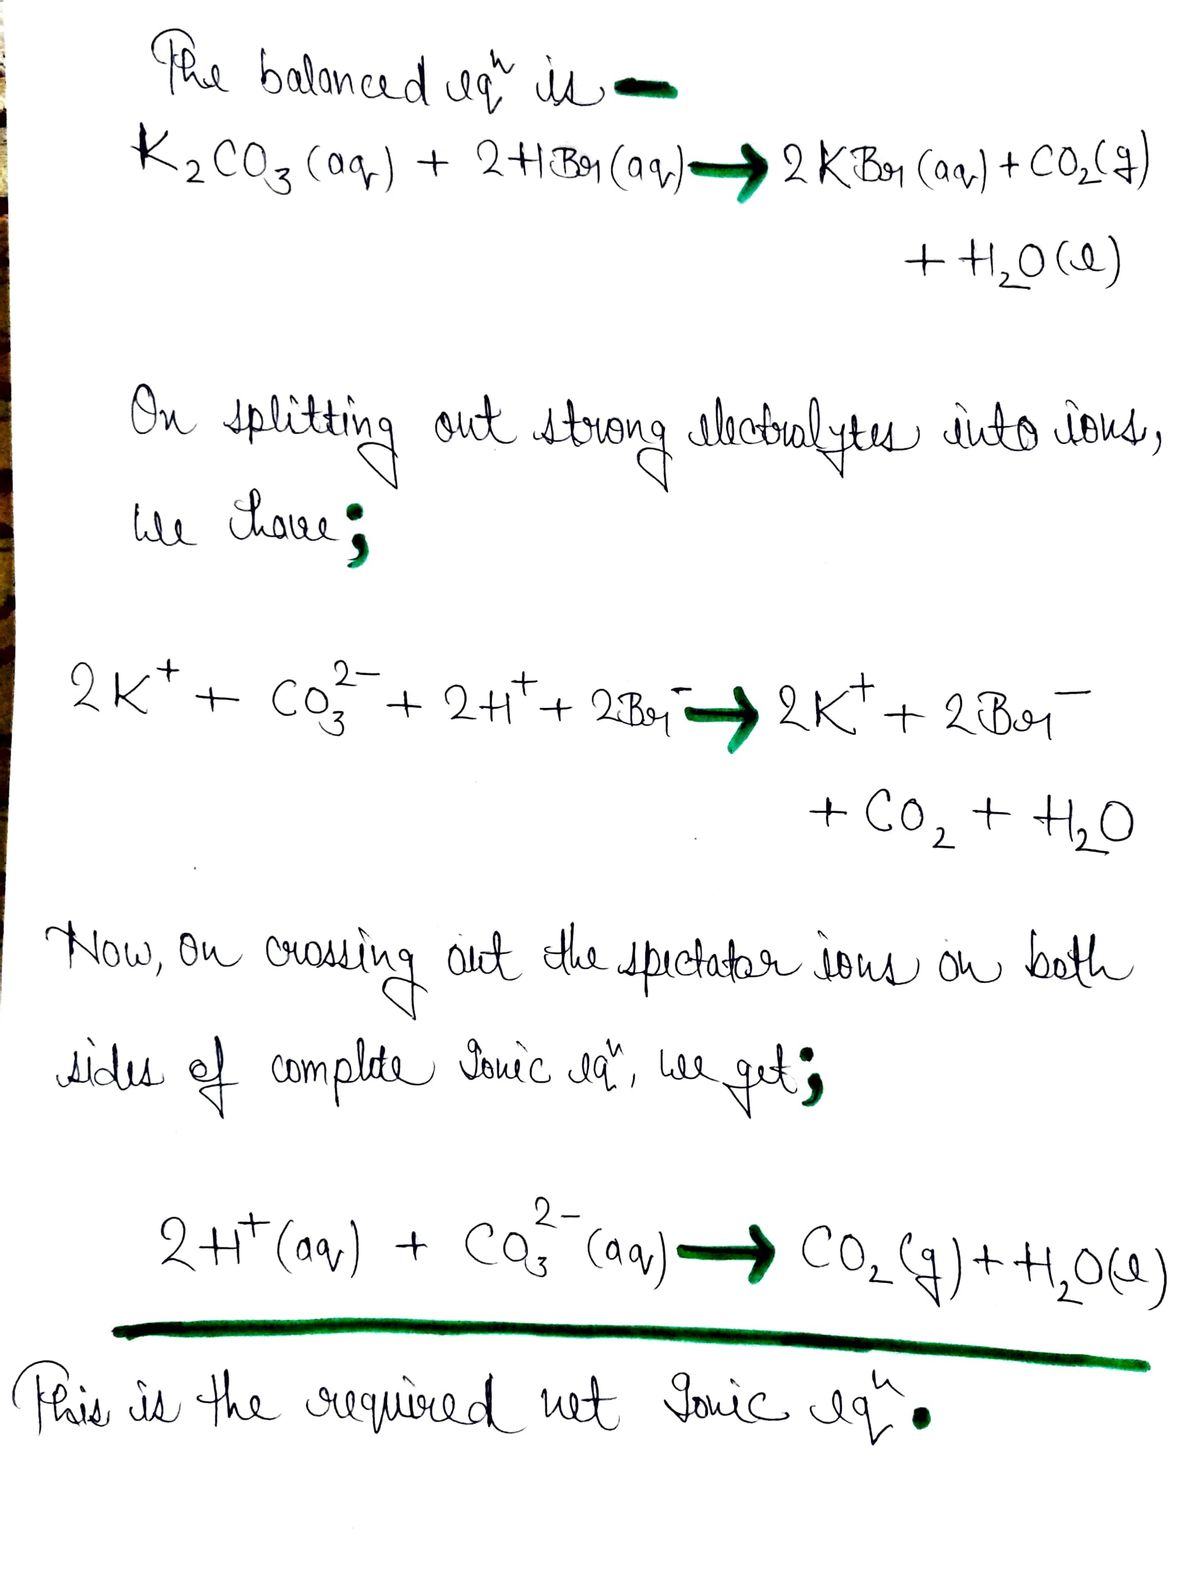 The balanced eqⁿ is -
K₂CO₃(aq) + 2HBr(aq) → 2KBr(aq) + CO₂(g)
+ H₂O(l)
On splitting out strong electrolytes into ions,
we have;
2K⁺ + CO₃²⁻ + 2H⁺ + 2Br⁻ → 2K⁺ + 2Br⁻
+ CO₂ + H₂O
Now, on crossing out the spectator ions on both
sides of complete Ionic eqⁿ, we get;
2H⁺(aq) + CO₃²⁻(aq) → CO₂(g) + H₂O(l)
This is the required net Ionic eqⁿ.